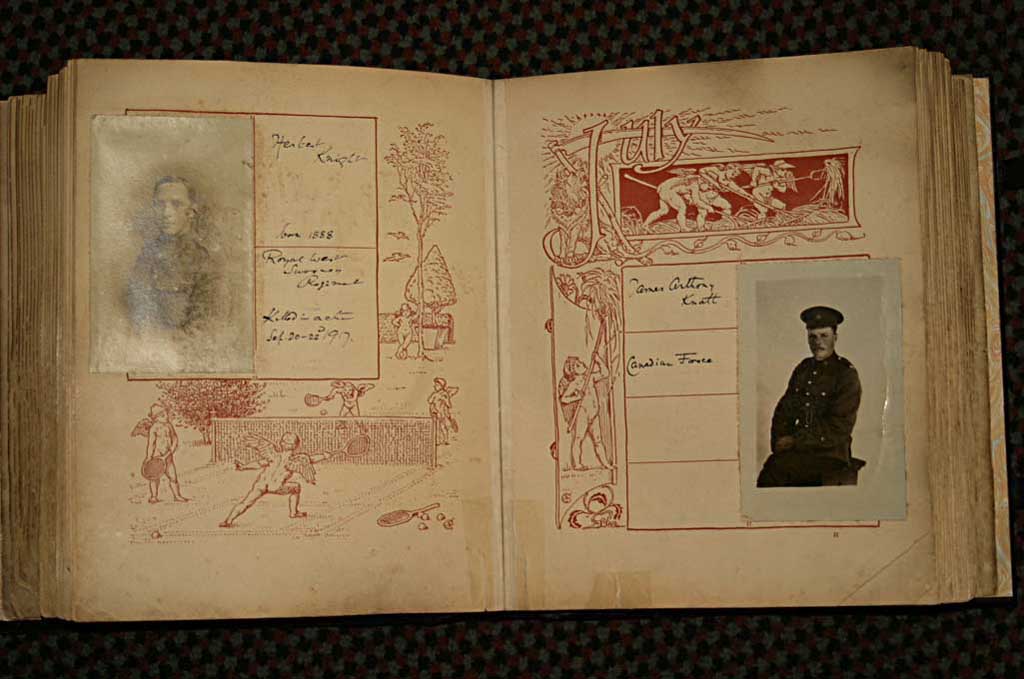 Herbert
Knight
born 1888
Royal West
Surrey
Regiment
Killed in action
Sep. 20-22nd 1917.
July
James Arthony
Knatt
Canadian Force